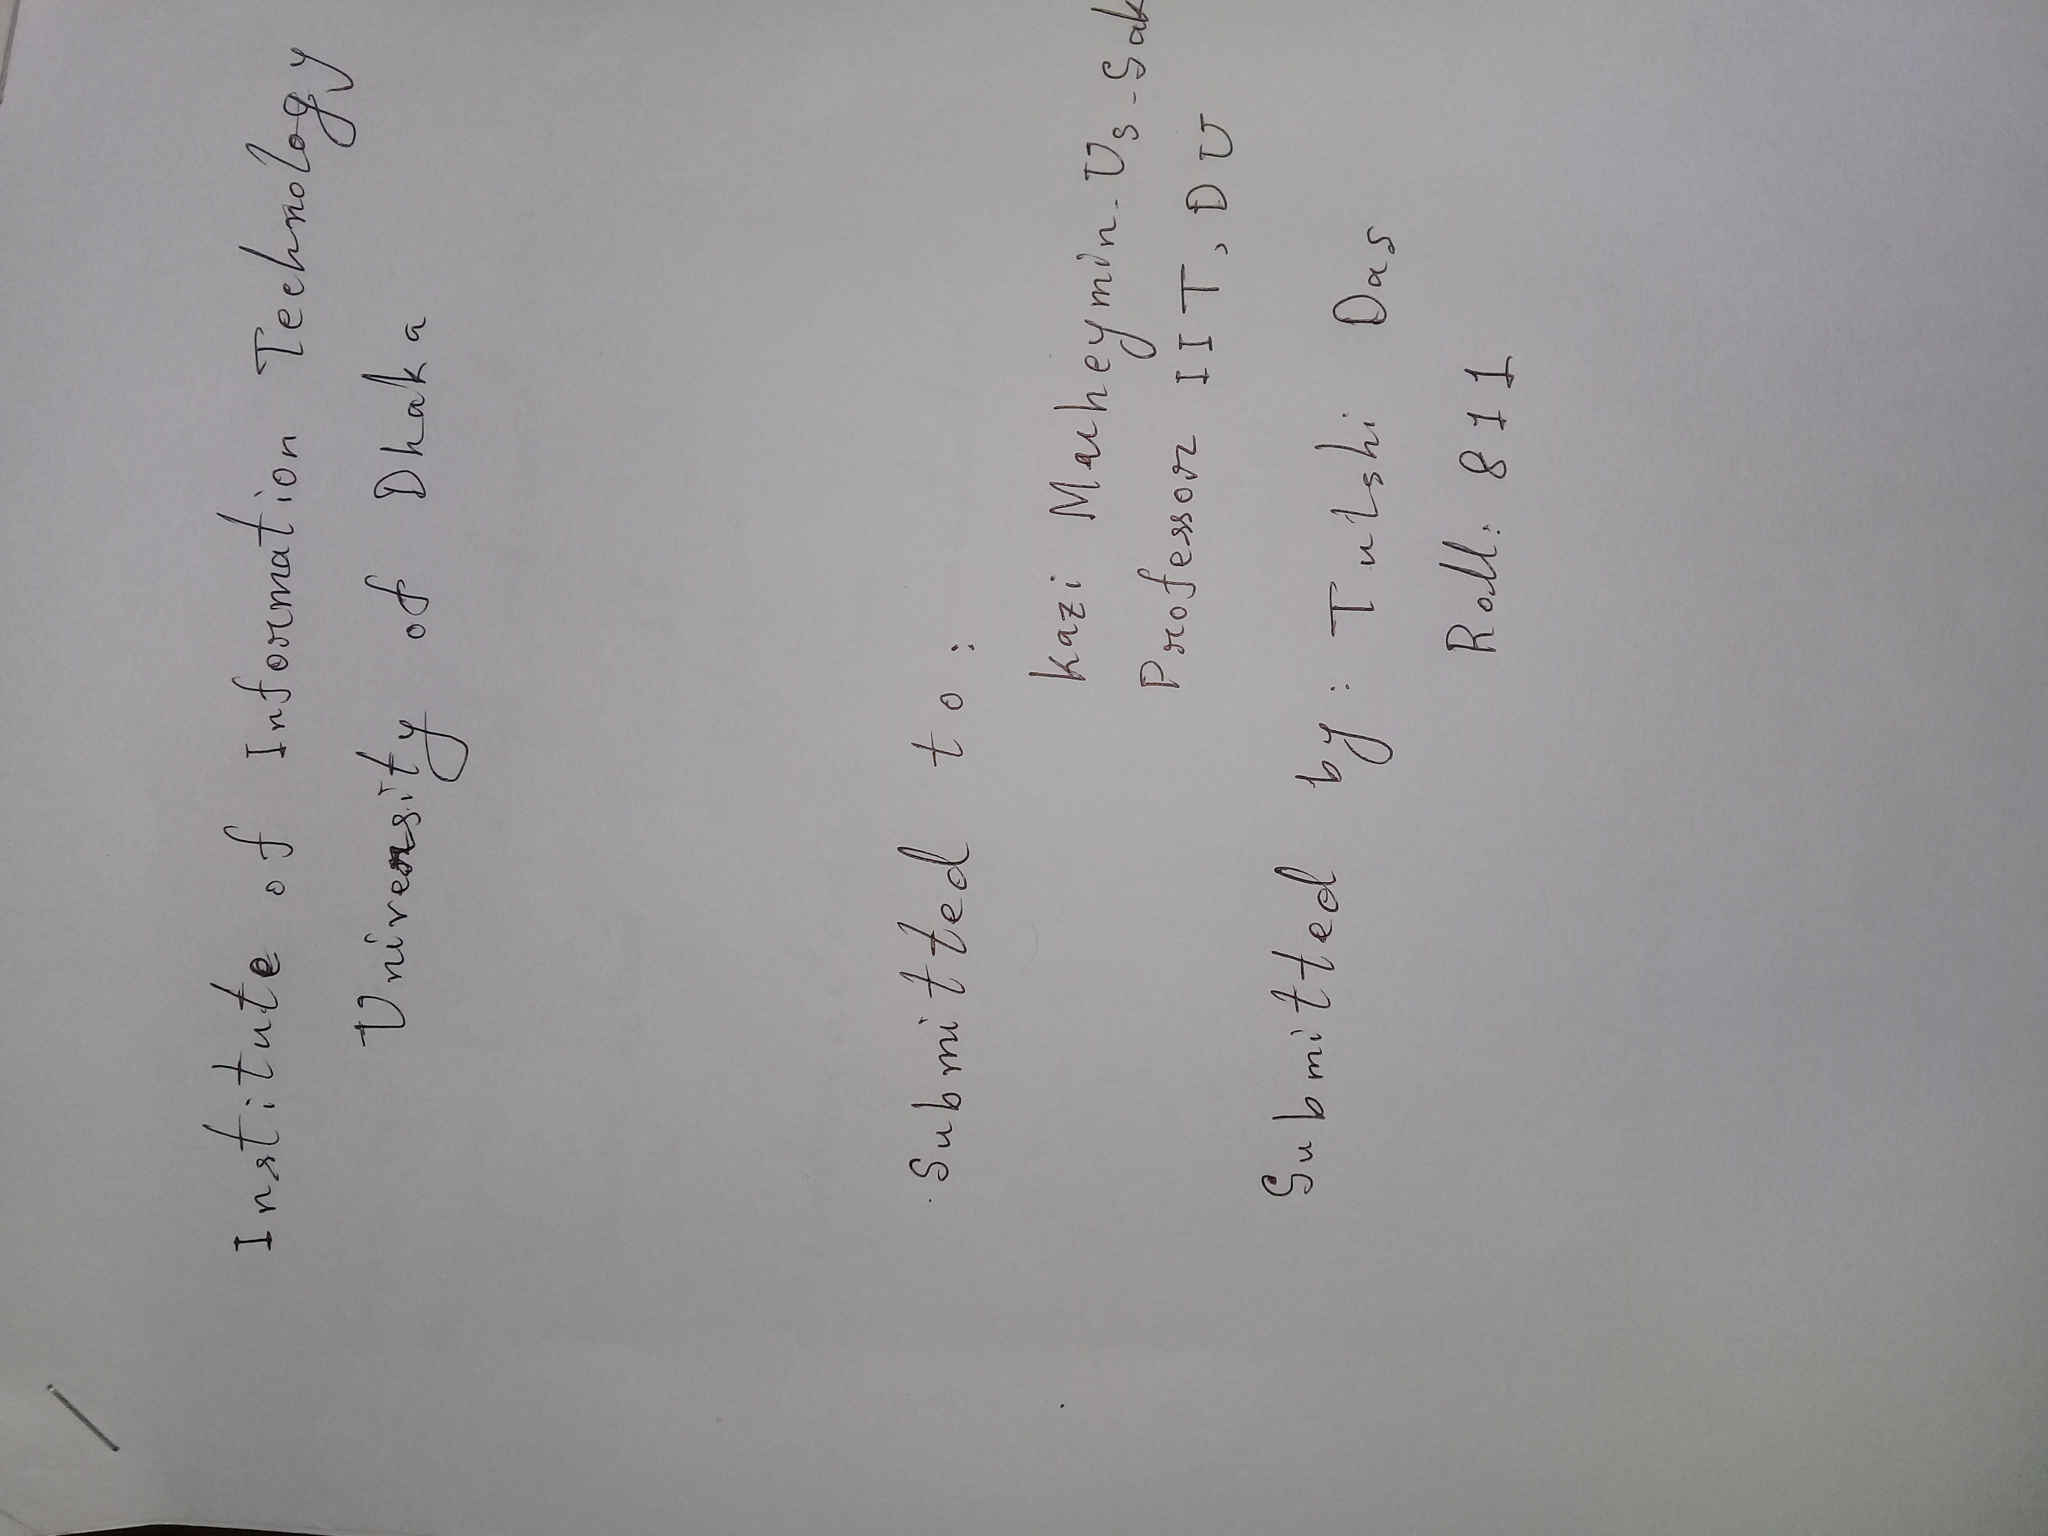 Institute of Information Technology
University of Dhaka
Submitted to:
Kazi Muheymin-Us-Sak
Professor IIT, DU
Submitted by: Tulshi Das
Roll: 811